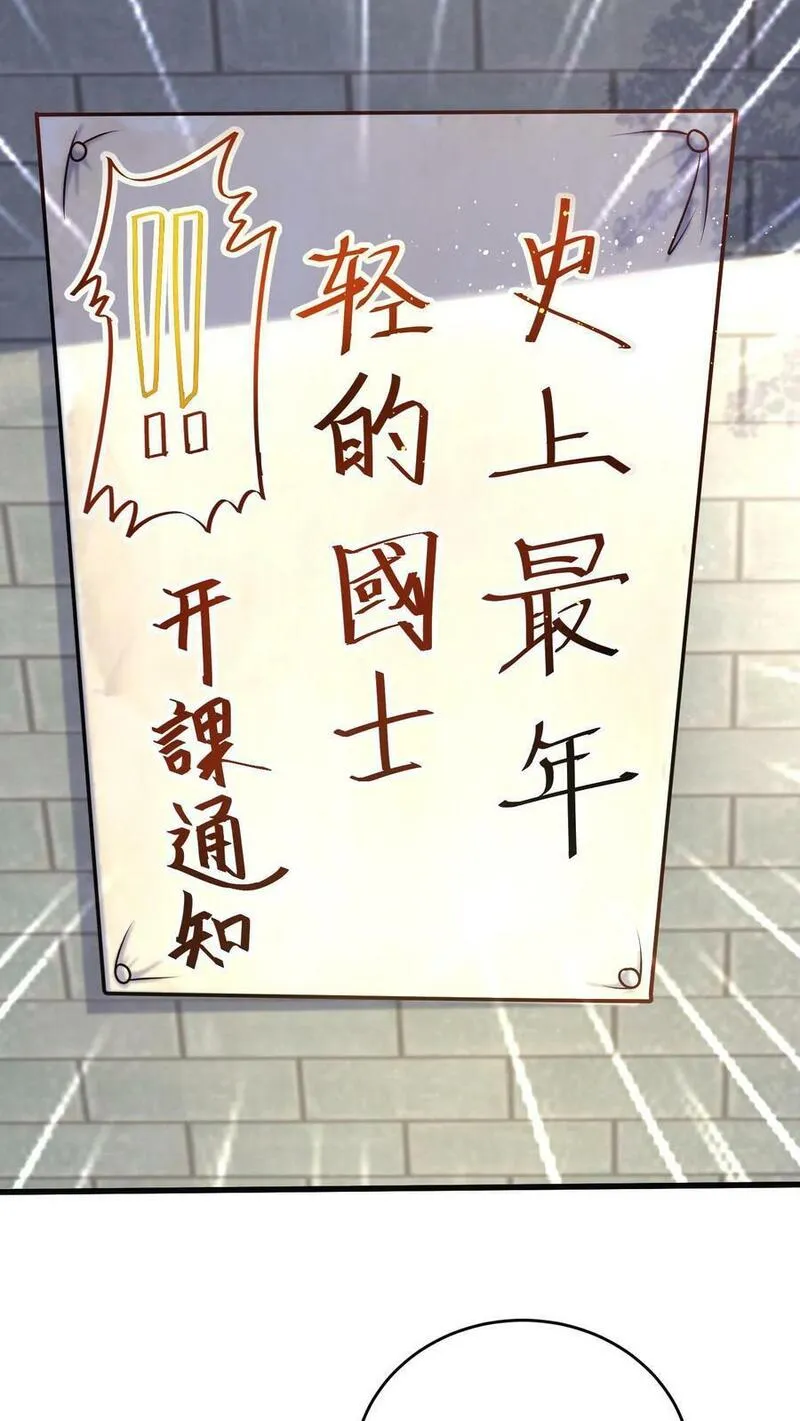 史上最年
轻的國士
!!
开課通知